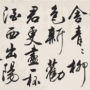 舍青々柳
色新勸
君更盡一杯
酒西出陽